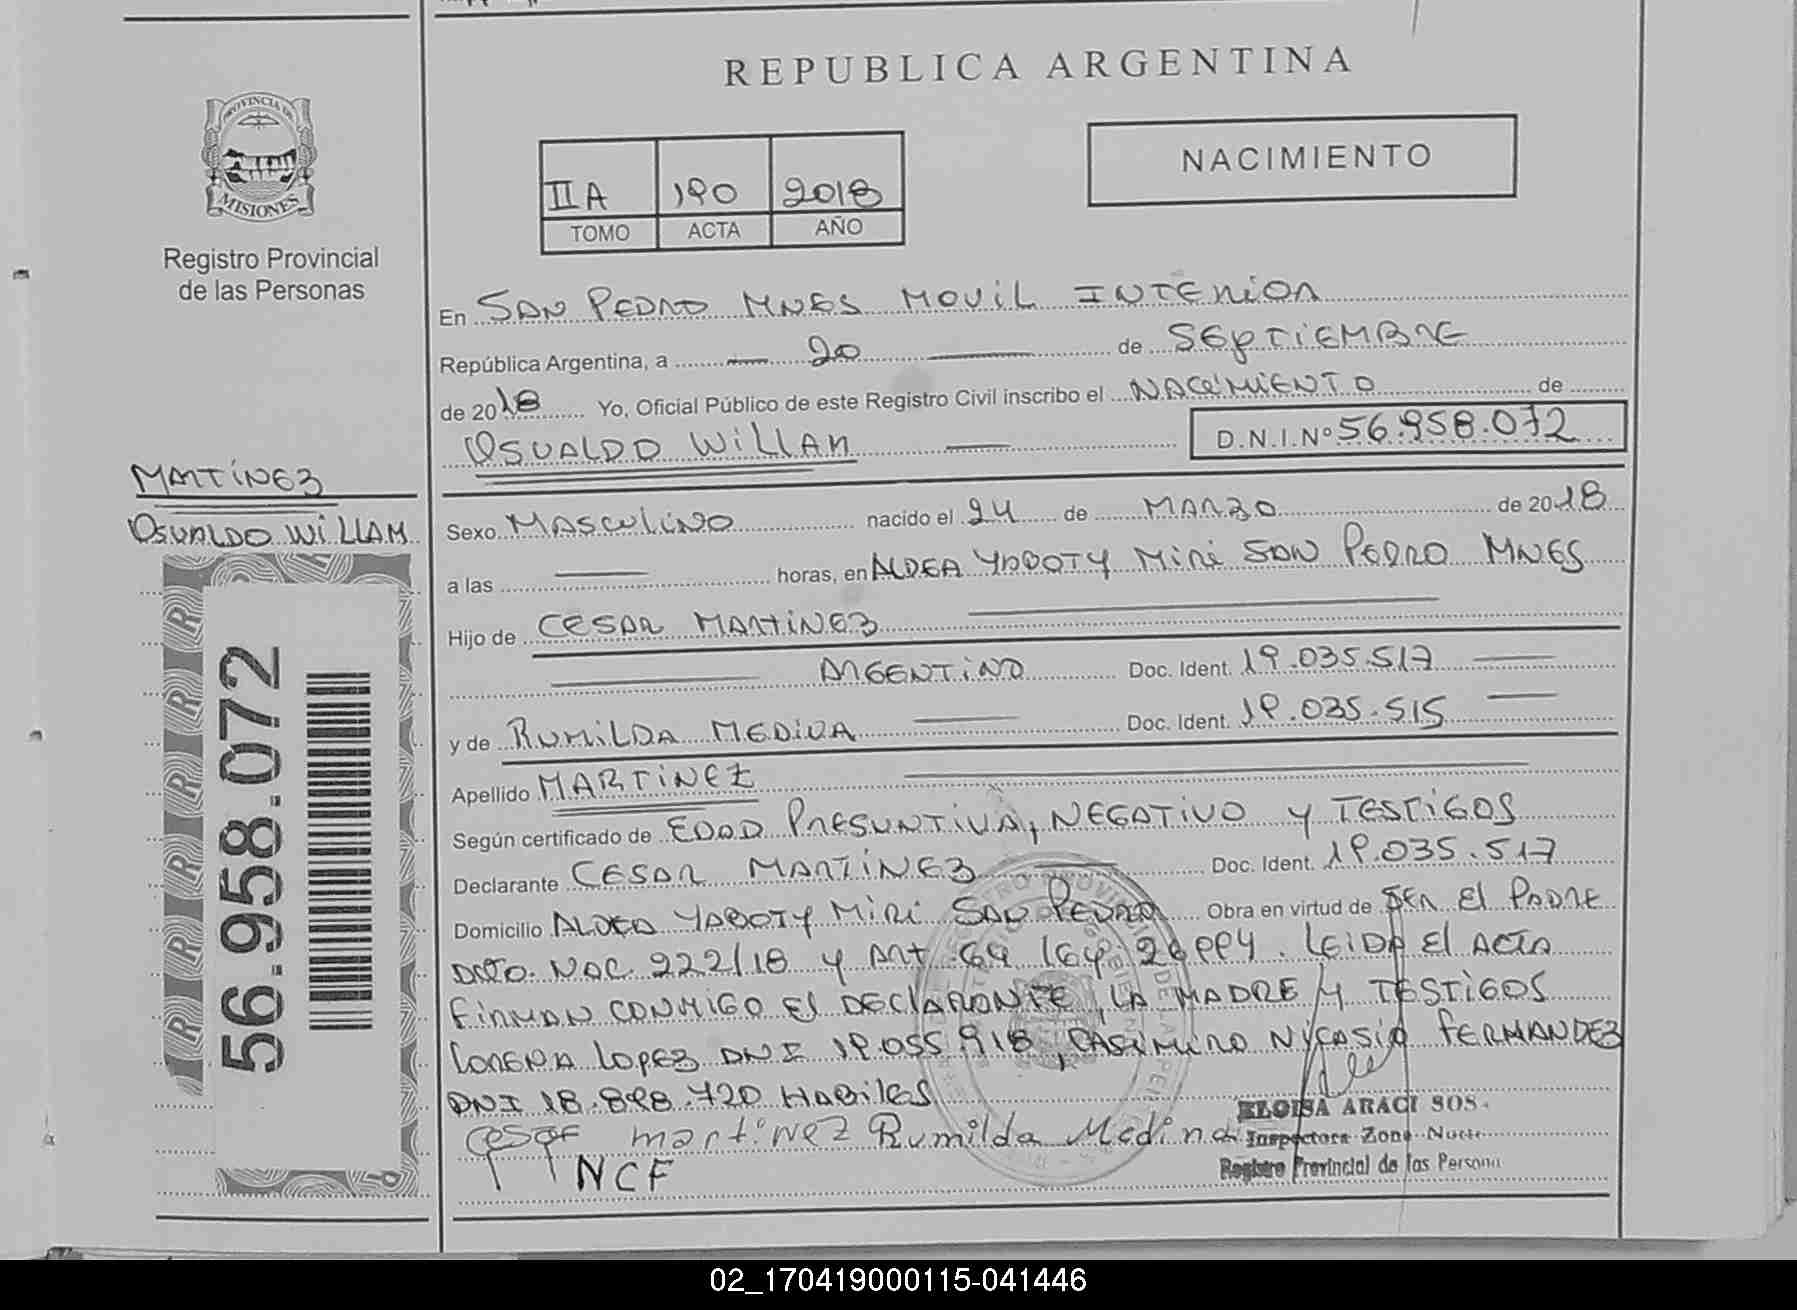 REPUBLICA ARGENTINA
NACIMIENTO
PROVINCIA DE
MISIONES
Registro Provincial
de las Personas
II A 190 2018
TOMO ACTA AÑO
En SAN PEDRO MNES MOVIL INTERIOR
República Argentina, a 20 de SEPTIEMBRE
de 2018 Yo, Oficial Público de este Registro Civil inscribo el NACIMIENTO de
OSVALDO WILLAM D.N.I.Nº 56.958.072
MARTÍNEZ
OSVALDO WILLAM
56.958.072
Sexo MASCULINO nacido el 24 de MARZO de 2018
a las horas, en ALDEA YABOTY MIRI SAN PEDRO MNES
Hijo de CESAR MARTINEZ
ARGENTINO Doc. Ident. 19.035.517
y de RUMILDA MEDINA Doc. Ident. 19.035.515
Apellido MARTINEZ
Según certificado de EDAD PRESUNTIVA, NEGATIVO Y TESTIGOS
Declarante CESAR MARTINEZ Doc. Ident. 19.035.517
Domicilio ALDEA YABOTY MIRI SAN PEDRO Obra en virtud de SER El PADRE
DCTO. NAC. 222/18 Y ART 64 LEIDA El ACTA
FIRMAN CONMIGO El DEClARANTE, LA MADRE Y TESTIGOS
LORENA LOPEZ DNI 19.055.918, CASIMIRO NYCASIO FERNANDEZ
DNI 18.898.720 HABILES
cesar martinez Rumilda Medina
NCF
ELOISA ARACI SOS
Inspectora Zona Norte
Registro Provincial de las Persona
02_170419000115-041446